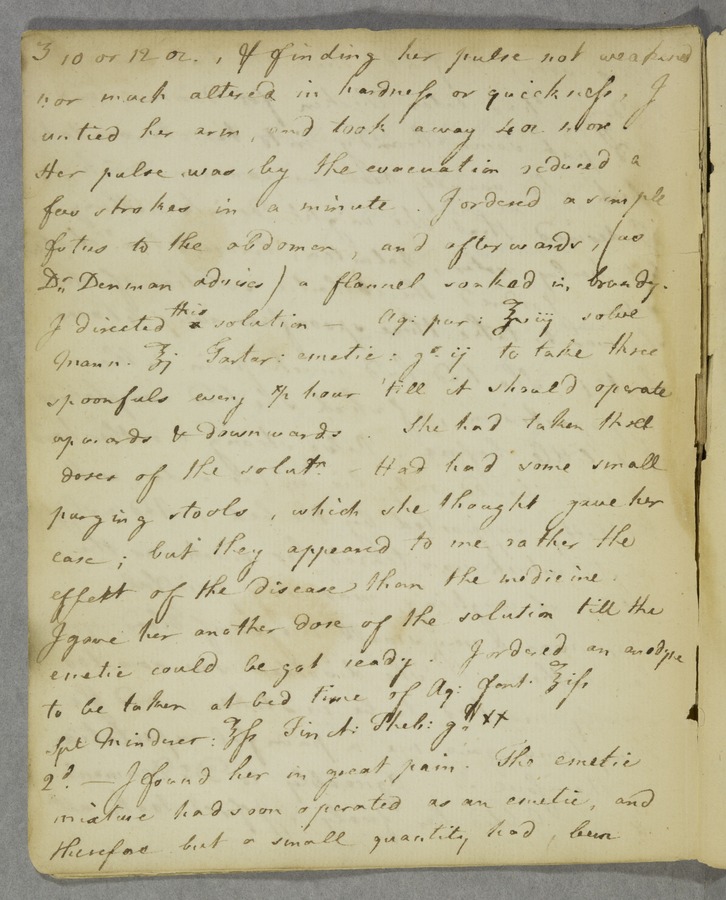 10 or 12 oz., & finding her pulse not weakened
nor much altered in hardness or quickness, I
untied her arm, and took away 4 oz. more.
Her pulse was by the evacuation reduced a
few strokes in a minute. I ordered a simple
fotus to the abdomen, and afterwards, (as
Dr. Denman advises) a flannel soaked in brandy.
I directed this solution — Aq: pur: ℥viij solve
Mann. ℥j Tartar: emetic: gr. ij to take three
spoonfuls every ½ hour 'till it should operate
upwards & downwards. She had taken three
doses of the solutn. — Had had some small
purging stools, which she thought gave her
ease; but they appeared to me rather the
effect of the disease than the medicine.
I gave her another dose of the solution till the
emetic could be got ready. I ordered an anodyne
to be taken at bed time of Aq: font. ℥iſs
Spt Minderer: ℥ſs Tinct: Theb: gtt xx
2d. — I found her in great pain. The emetic
mixture had soon operated as an emetic, and
therefore but a small quantity had been